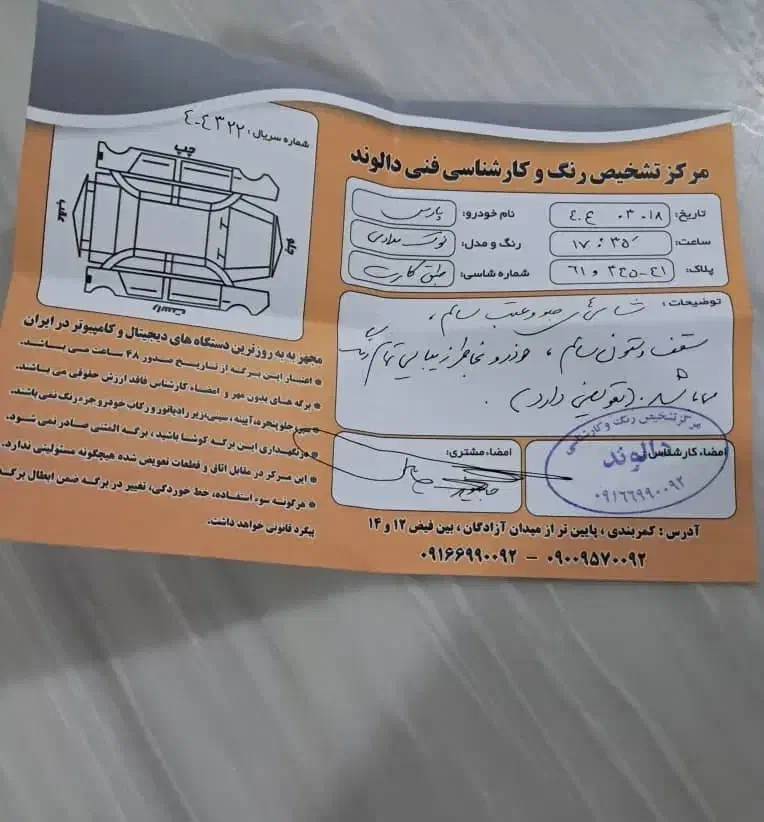 مرکز تشخیص رنگ و کارشناسی فنی دالوند
تاریخ: ۴۰۴.۰۳.۱۸
نام خودرو: پارس
ساعت: ۱۷:۳۵
رنگ و مدل: نوک مدادی
پلاک:
شماره شاسی: طبق کارت
توضیحات: شاسی های جلو و عقب سالم،
سقف و ستون سالم، خودرو بخاطر زیبایی تمام رنگ
می باشد. (تعویضی دارد).
امضاء کارشناس:
امضاء مشتری:
مرکز تشخیص رنگ و کارشناسی
دالوند
۰۹۱۶۶۹۹۰۰۹۲
آدرس: کمربندی، پایین تر از میدان آزادگان، بین فیض ۱۲ و ۱۴
۰۹۱۶۶۹۹۰۰۹۲ - ۰۹۰۰۹۵۷۰۰۹۲
شماره سریال: ۴۰۴۳۲۲
چپ
عقب
جلو
راست
مجهز به به روزترین دستگاه های دیجیتال و کامپیوتر در ایران
* اعتبار این برگه از تاریخ صدور ۴۸ ساعت می باشد.
* برگه های بدون مهر و امضاء کارشناس فاقد ارزش حقوقی می باشد.
* سپر، جلو پنجره، آیینه، سینی زیر رادیاتور و رکاب خودرو جزء رنگ نمی باشد.
* در نگهداری این برگه کوشا باشید، برگه المثنی صادر نمی شود.
* این مرکز در مقابل اتاق و قطعات تعویض شده هیچگونه مسئولیتی ندارد.
* هرگونه سوء استفاده، خط خوردگی، تغییر در برگه ضمن ابطال برگه
پیگرد قانونی خواهد داشت.